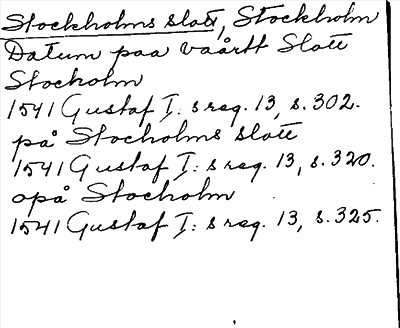 Stockholms slott, Stockholm
Datum paa vaårtt Slott
Stocholm
1541 Gustaf I: s reg. 13, s. 302.
på Stocholms slott
1541 Gustaf I: s reg. 13, s. 320.
opå Stocholm
1541 Gustaf I: s reg. 13, s. 325.